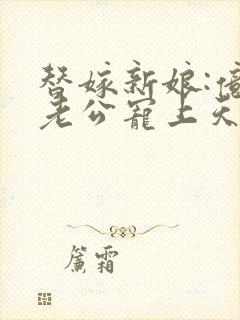 替嫁新娘:億
老公寵上天
簾霜